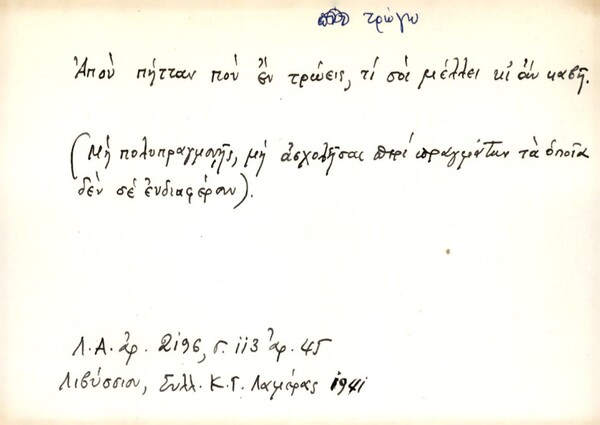 τρώγω
Ἀποὺ πήτταν ποὺ ἒν τρώεις, τί σοὶ μέλλει κι ἂν καβῆ.
(Μὴ πολυπραγμονῇς, μὴ ἀσχολῆσαι περὶ πραγμάτων τὰ ὁποῖα
δὲν σὲ ἐνδιαφέρουν).
Λ.Α. ἀρ. 2196, σ. 113 ἀρ. 45
Λιβύσσιον, Συλλ. Κ.Γ. Λαμέρας 1941